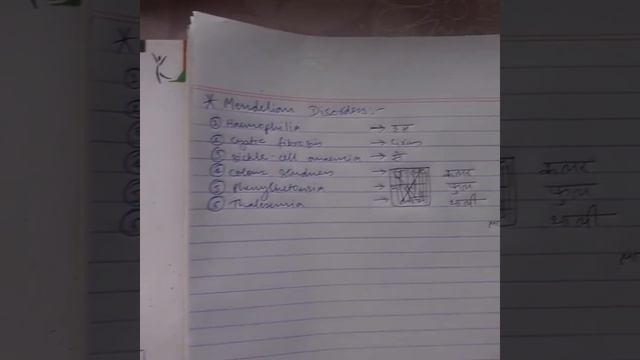 * Mendelian Disorders:-
① Haemophilia →
② Cystic fibrosis →
③ Sickle-cell anaemia →
④ Colour blindness → कलर
⑤ Phenylketonuria → फुल
⑥ Thalesemia → थाली